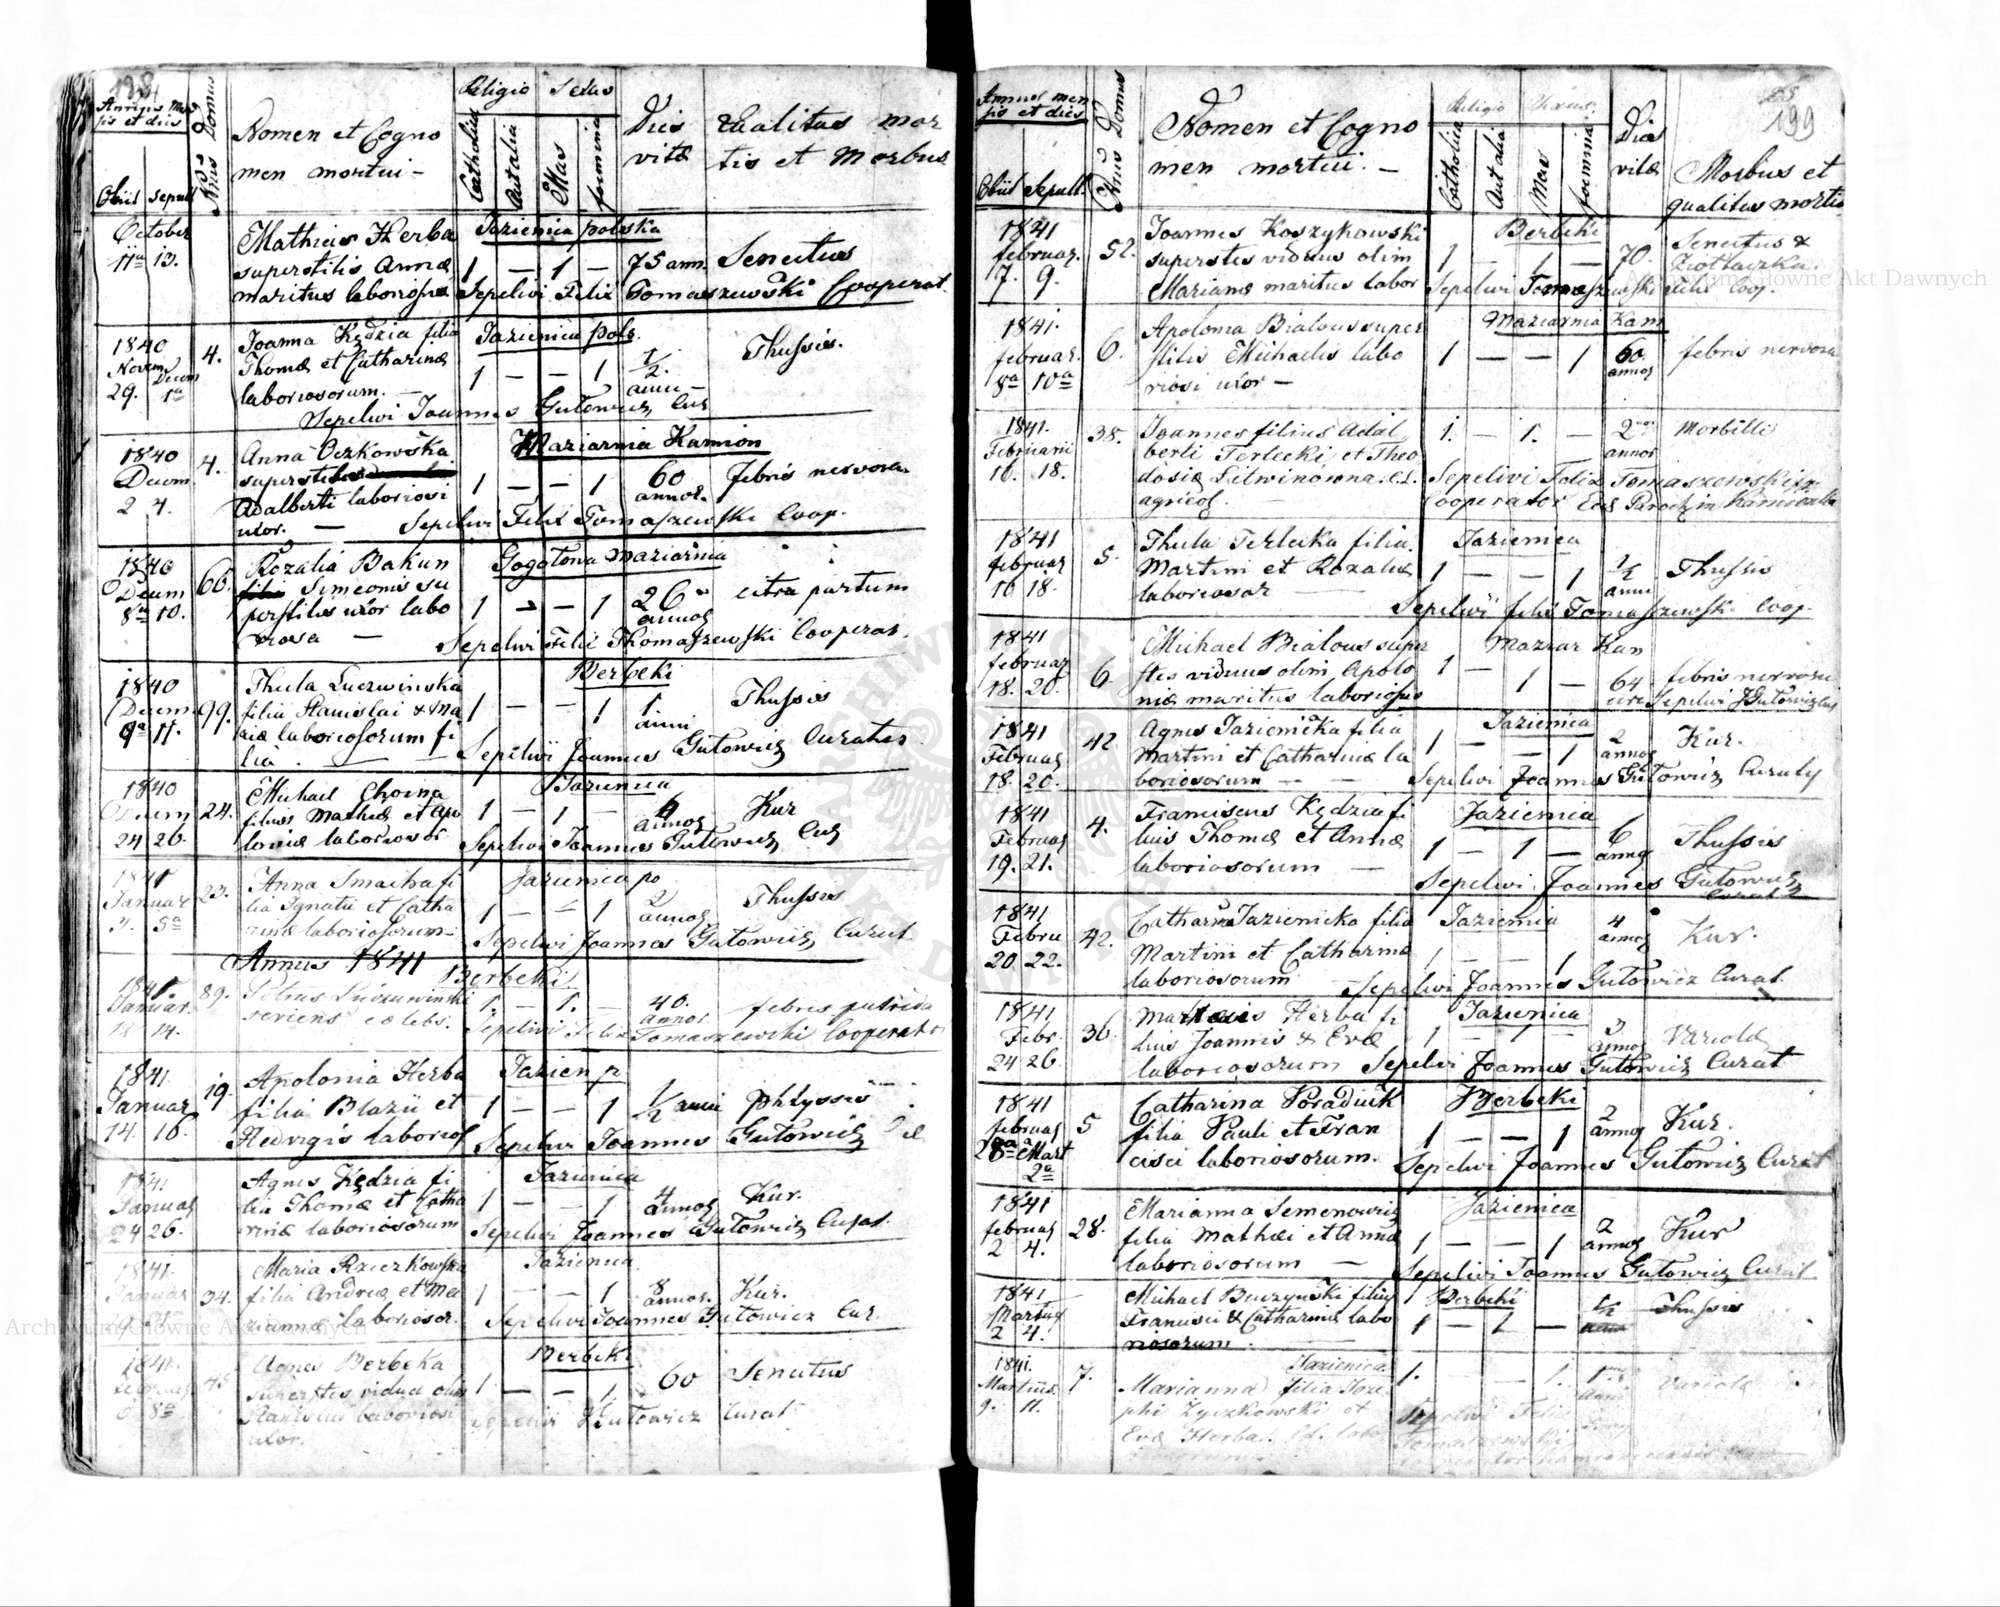 198
Annus Men
sis et dies
Obiit sepult
Nrus Domus
Nomen et Cogno
men mortui -
Religio
Catholica
aut alia
Sexus
Mas
foemina
Dies
vitæ
Qualitas mor
tis et Morbus
October
11ª 13.
Mathias Herba
superstitis Annæ
maritus laboriosæ
Jazienica polska
1 — 1 — 75 ann. Senectus
Sepelivi Felix Tomaszewski Cooperat.
1840
Novem Decem
29. 1ª
4.
Joanna Kędzia filia
Thomæ et Catharinæ
laboriosorum. —
Jazienica pols.
1 — — 1 ½ anni — Thussis.
Sepelivi Joannes Gutowicz Cur
1840
Decem
2 4.
4.
Anna Oczkowska
superstitis
Adalberti laboriosi
uxor. —
Maziarnia Kamion
1 — — 1 60 annor. febris nervosa
Sepelivi Felix Tomaszewski Coop.
1840
Decem
8va 10.
66.
Rozalia Bakun
filia Simeonis su
perstitis uxor labo
riosa —
Gogołowa Maziarnia
1 — — 1 26 annos citra partum
Sepelivi Felix Thomaszewski Cooperat.
1840
Decem
9ª 11.
99.
Thecla Luczwinska
filia Stanislai & Ma
riæ laboriosorum fi
lia. —
Berbeki
1 — — 1 1 anni Thussis
Sepelivi Joannes Gutowicz Curatus
1840
Decem
24 26.
24.
Michael Choina
filius Mathiæ et Apo
loniæ laboriosor.
Jazienica
1 — 1 — 6 annos Kur
Sepelivi Joannes Gutowicz Cur
1841
Januar
3. 5ª
23.
Anna Smachafi
lia Ignatii et Catha
rinæ laboriosorum —
Jazienica po
1 — — 1 2 annos Thussis
Sepelivi Joannes Gutowicz Curat
Annus 1841
1841.
Januar.
12 14.
89.
Petrus Luczuwinski
serviens cælebs.
Berbeki
1. — 1. — 40. annor febris putrida
Sepelivi Felix Tomaszewski Cooperator
1841.
Januar
14. 16.
19.
Apolonia Herba
filia Blazii et
Hedvigis laborios
Jazien p
1 — — 1 ½ anni phtyssis
Sepelivi Joannes Gutowicz
1841
Januar
24 26.
Agnes Kędzia fi
lia Thomæ et Catha
rinæ laboriosorum
Jazienica
1 — — 1 4 annos Kur.
Sepelivi Joannes Gutowicz Curat.
1841.
Januar
29 31ª
34.
Maria Rzeczkowska
filia Andreæ et Ma
riannæ laboriosor.
Jazienica
1 — — 1 8 annos. Kur.
Sepelivi Joannes Gutowicz Cur.
1841.
Februar
6 8ª
45
Agnes Berbeka
superstes vidua olim
Stanislai laboriosi
uxor.
Berbeki
1 — — 1. 60 Senectus
Sepelivi J Gutowicz Curat
199
Annus men
sis et dies
Obiit Sepult.
Nrus Domus
Nomen et Cogno
men mortui. —
Religio
Catholica
Aut alia
Sexus.
Mas
foemina
Dies
vitæ
Morbus et
qualitas mortis
1841
februar.
7. 9.
52.
Joannes Koszykowski
superstes viduus olim
Marianæ maritus labor
Berbeki
1 — 1 — 70. Senectus &
Sepelivi Tomaszewski Felix Coop.
1841.
februar.
8ª 10ª
6.
Apolonia Bialous super
stitis Michaelis labo
riosi uxor —
Maziarnia Kam
1 — — 1 60. annos febris nervosa
1841.
Februarii
16. 18.
38.
Joannes filius Adal
berti Terlecki et Theo
dosiæ Litwinówna c.l.
agricol.
1. — 1. — 2 annor Morbilli
Sepelivi Felix Tomaszewski
Cooperator Eccl Paroch in Kamionka
1841
februar
16 18.
5.
Thecla Terlecka filia
Martini et Rozaliæ
laboriosor
Jazienica
1 — — 1 ½ anni Thussis
Sepelivi Felix Tomaszewski Coop.
1841
februar
18. 20.
6.
Michael Bialous super
stes viduus olim Apolo
niæ maritus laboriosus
Maziar Kam
1 — 1 — 64 circ febris nervosa
Sepelivi J Gutowicz Cur
1841
Februar
18. 20.
42.
Agnes Jazienicka filia
Martini et Catharinæ la
boriosorum — —
Jazienica
1 — — 1 2 annos Kur.
Sepelivi Joannes Gutowicz Curaty
1841
Februar
19. 21.
4.
Franciscus Kędzia fi
lius Thomæ et Annæ
laboriosorum —
Jazienica
1 — 1 — 6 annos Thussis
Sepelivi Joannes Gutowicz
Curat
1841
Febru
20. 22.
42.
Catharina Jazienicka filia
Martini et Catharinæ
laboriosorum —
Jazienica
1 — — 1 4 annos Kur.
Sepelivi Joannes Gutowicz Curat.
1841
Febr.
24 26.
36.
Herba fi
lius Joannis & Evæ
laboriosorum
Jazienica
1 — 1 — 3 annos Variola
Sepelivi Joannes Gutowicz Curat
1841
februar
28ª Mart
2ª
5
Catharina Poradiuk
filia Pauli et Fran
cisci laboriosorum.
Berbeki
1 — — 1 2 annos Kur.
Sepelivi Joannes Gutowicz Curat
1841
februar
2 4.
28.
Marianna Semenowicz
filia Mathæi et Annæ
laboriosorum —
Jazienica
1 — — 1 2 annos Kur
Sepelivi Joannes Gutowicz Curat
1841
Martius
2 4.
Michael Buczynski filius
Francisci & Catharinæ labo
riosorum.
Berbeki
1 — 1 — ½ Thussis
1841.
Martius.
9. 11.
7.
Jazienica
Marianna filia Joze
phi Zyczkowski et
Evæ Herba. c.l. labo
1. — — 1. 1 anni Variola
Sepelivi Felix
Tomaszewski
Archiwum Główne Akt Dawnych
Archiwum Główne Akt Dawnych